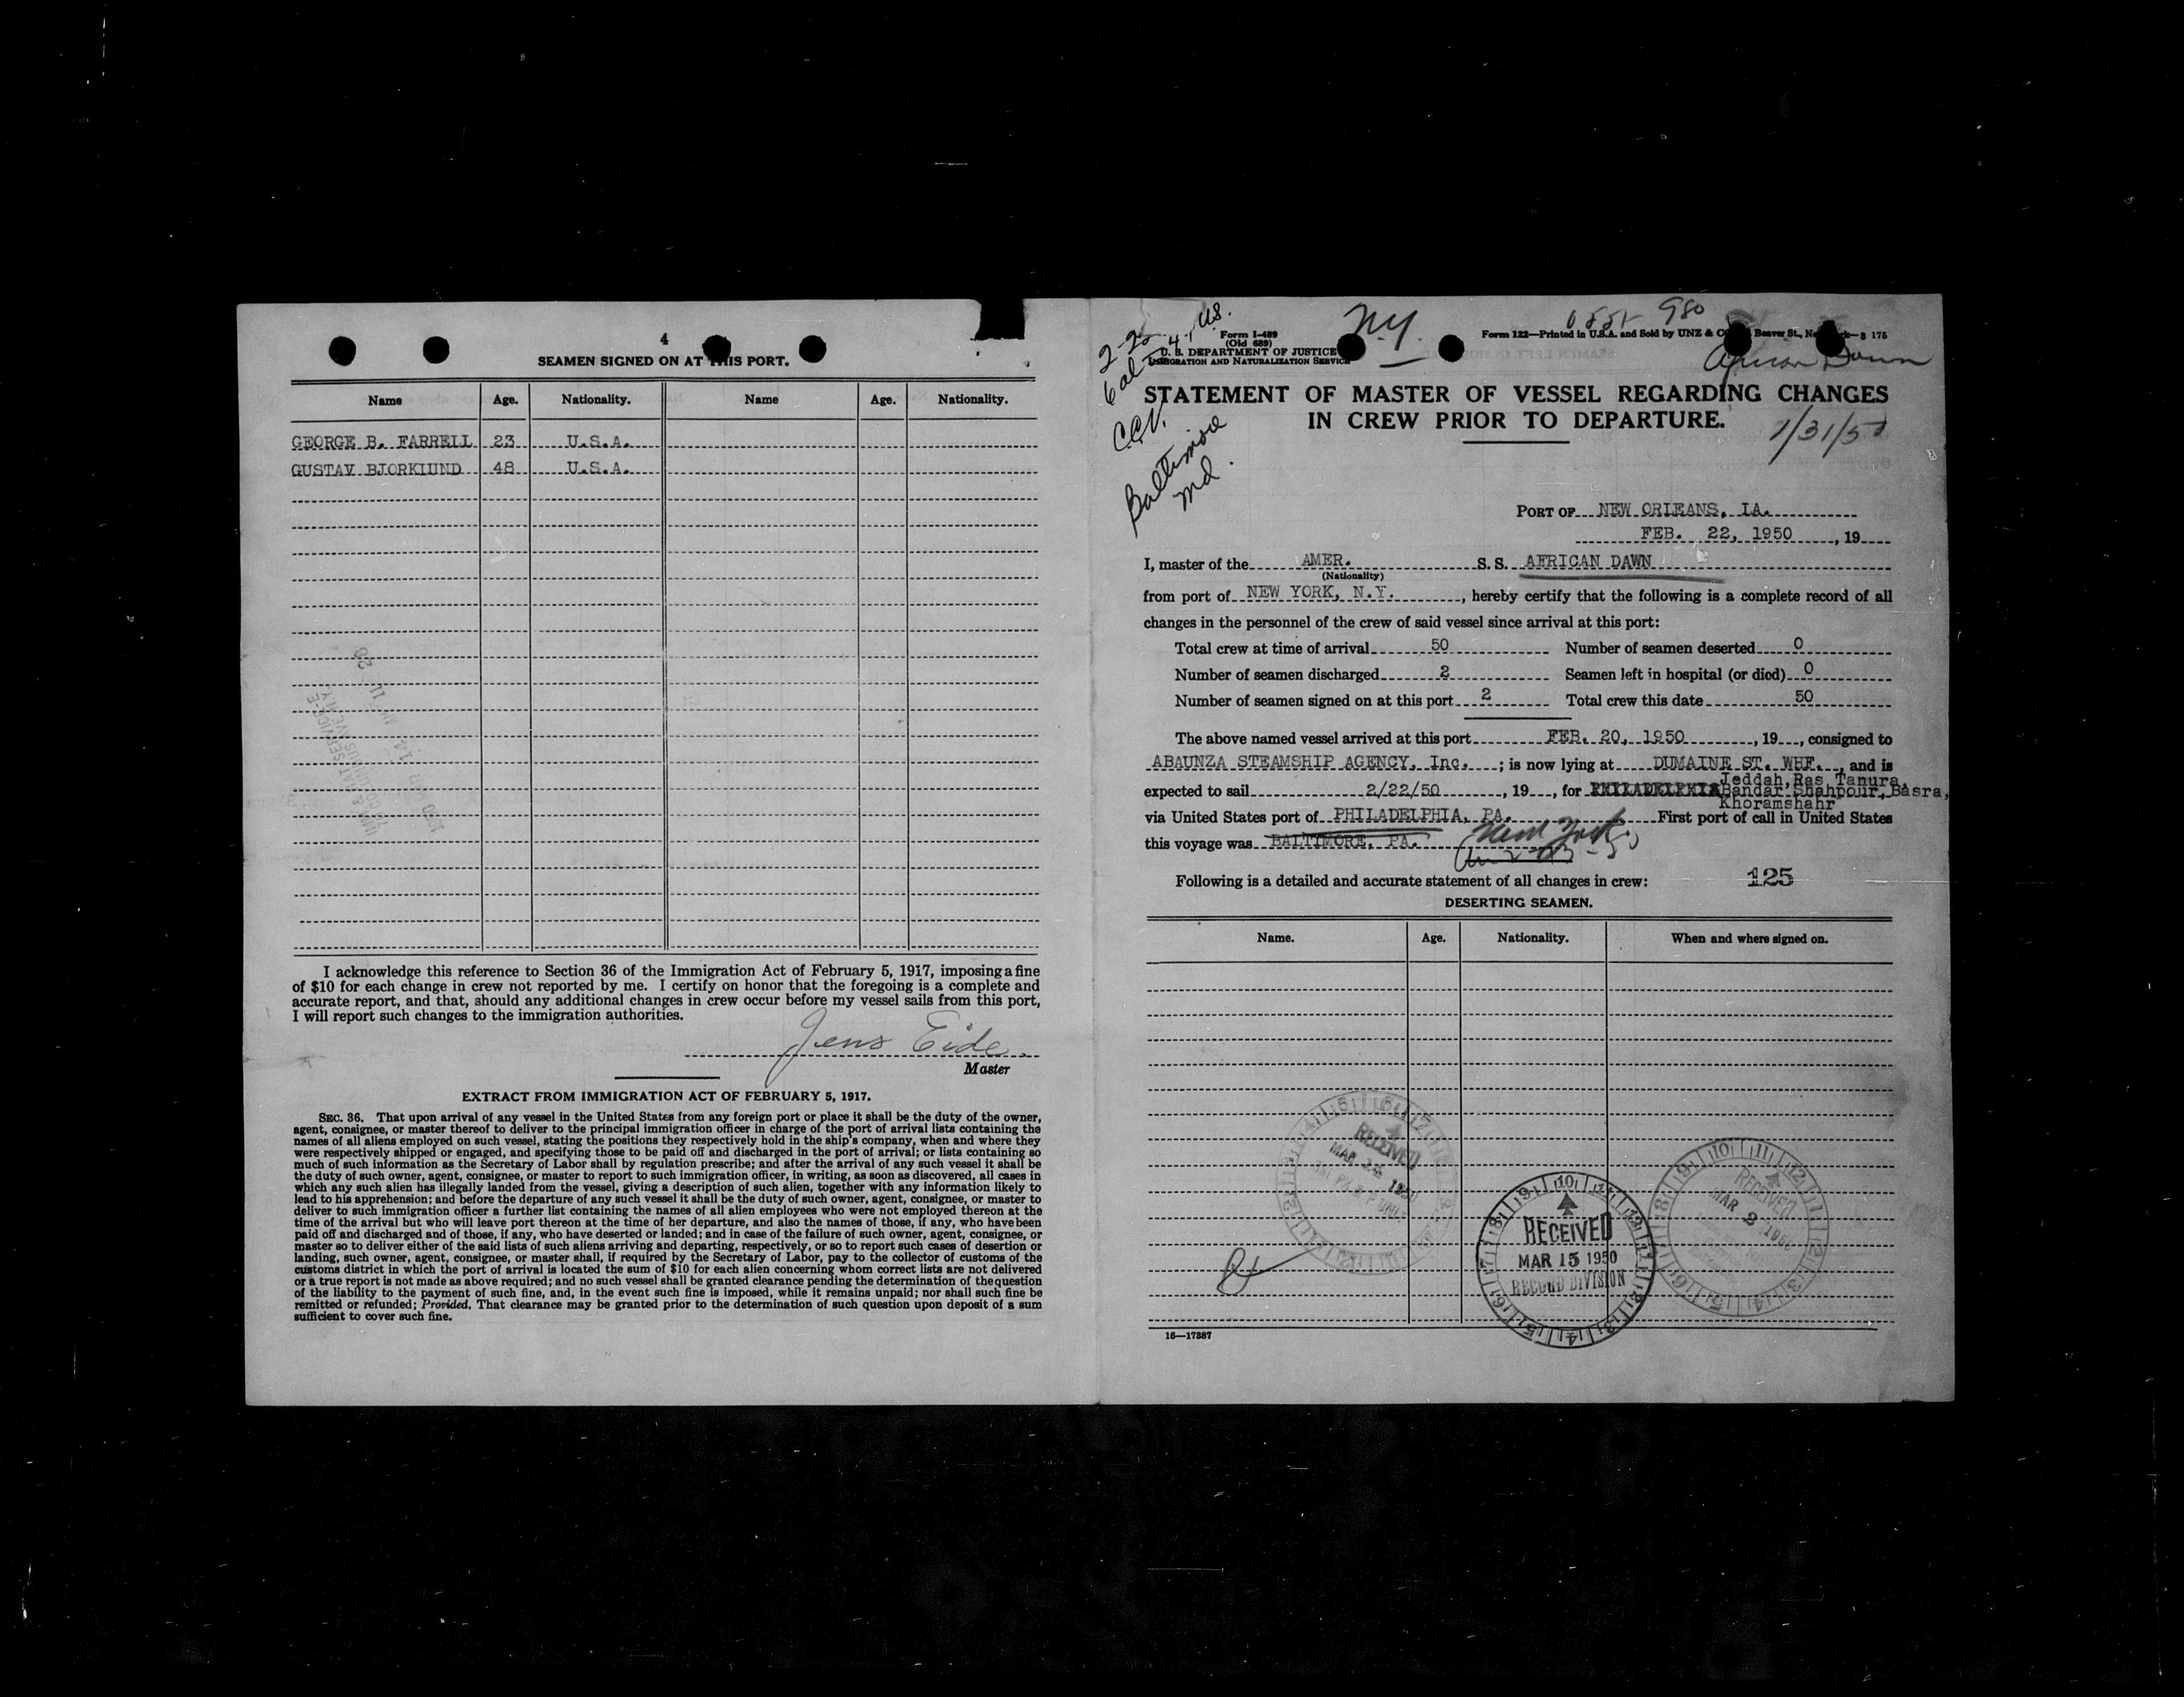 4
SEAMEN SIGNED ON AT THIS PORT.
Name Age. Nationality. Name Age. Nationality.
GEORGE B. FARRELL 23 U.S.A.
GUSTAV BJORKLUND 48 U.S.A.
I acknowledge this reference to Section 36 of the Immigration Act of February 5, 1917, imposing a fine
of $10 for each change in crew not reported by me. I certify on honor that the foregoing is a complete and
accurate report, and that, should any additional changes in crew occur before my vessel sails from this port,
I will report such changes to the immigration authorities.
Jens Eide
Master
EXTRACT FROM IMMIGRATION ACT OF FEBRUARY 5, 1917.
SEC. 36. That upon arrival of any vessel in the United States from any foreign port or place it shall be the duty of the owner,
agent, consignee, or master thereof to deliver to the principal immigration officer in charge of the port of arrival lists containing the
names of all aliens employed on such vessel, stating the positions they respectively hold in the ship's company, when and where they
were respectively shipped or engaged, and specifying those to be paid off and discharged in the port of arrival; or lists containing so
much of such information as the Secretary of Labor shall by regulation prescribe; and after the arrival of any such vessel it shall be
the duty of such owner, agent, consignee, or master to report to such immigration officer, in writing, as soon as discovered, all cases in
which any such alien has illegally landed from the vessel, giving a description of such alien, together with any information likely to
lead to his apprehension; and before the departure of any such vessel it shall be the duty of such owner, agent, consignee, or master to
deliver to such immigration officer a further list containing the names of all alien employees who were not employed thereon at the
time of the arrival but who will leave port thereon at the time of her departure, and also the names of those, if any, who have been
paid off and discharged and of those, if any, who have deserted or landed; and in case of the failure of such owner, agent, consignee, or
master so to deliver either of the said lists of such aliens arriving and departing, respectively, or so to report such cases of desertion or
landing, such owner, agent, consignee, or master shall, if required by the Secretary of Labor, pay to the collector of customs of the
customs district in which the port of arrival is located the sum of $10 for each alien concerning whom correct lists are not delivered
or a true report is not made as above required; and no such vessel shall be granted clearance pending the determination of the question
of the liability to the payment of such fine, and, in the event such fine is imposed, while it remains unpaid; nor shall such fine be
remitted or refunded; Provided, That clearance may be granted prior to the determination of such question upon deposit of a sum
sufficient to cover such fine.
Form I-489
(Old 689)
U. S. DEPARTMENT OF JUSTICE
IMMIGRATION AND NATURALIZATION SERVICE
N.Y.
980
Form 122—Printed in U.S.A. and Sold by UNZ & Beaver St., 175
African Dawn
Baltimore
Md.
STATEMENT OF MASTER OF VESSEL REGARDING CHANGES
IN CREW PRIOR TO DEPARTURE.
1/31/50
PORT OF NEW ORLEANS, LA.
FEB. 22, 1950, 19
I, master of the AMER. S. S. AFRICAN DAWN
(Nationality)
from port of NEW YORK, N.Y., hereby certify that the following is a complete record of all
changes in the personnel of the crew of said vessel since arrival at this port:
Total crew at time of arrival 50 Number of seamen deserted 0
Number of seamen discharged 2 Seamen left in hospital (or died) 0
Number of seamen signed on at this port 2 Total crew this date 50
The above named vessel arrived at this port FEB. 20, 1950, 19, consigned to
ABAUNZA STEAMSHIP AGENCY, Inc.; is now lying at DUMAINE ST. WHF., and is
Jeddah, Ras Tanura,
expected to sail 2/22/50, 19, for PHILADELPHIA Bandar Shahpour, Basra,
Khoramshahr
via United States port of PHILADELPHIA, PA. First port of call in United States
this voyage was BALTIMORE, PA. New York
Following is a detailed and accurate statement of all changes in crew: 125
DESERTING SEAMEN.
Name. Age. Nationality. When and where signed on.
RECEIVED
MAR 24 1950
RECEIVED
MAR 15 1950
RECORD DIVISION
RECEIVED
MAR 9 1950
16—17387